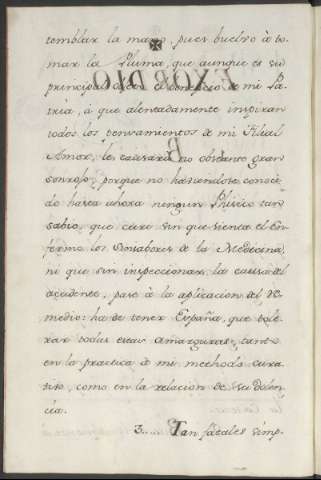 temblar la mano, pues buelvo à to-
mar la Pluma, que aunque es su
principal objeto el beneficio de mi Pa-
tria, à que alentadamente inspiran
todos los pensamientos de mi Filial
Amor, le causarà no obstante gran
sonrojo; porque no haviendose conoci-
do hasta ahora ningun Phisico tan
sabio, que cure sin que sienta el En-
fermo los sinsabores de la Medicina,
ni que sin inspeccionar la causa del
accidente, pase à la aplicacion del re-
medio: ha de tener España, que tole-
rar todas estas amarguras, tanto
en la practica de mi methodo cura-
tivo, como en la relacion de su dolen-
cia.
3..... Tan fatales simp-